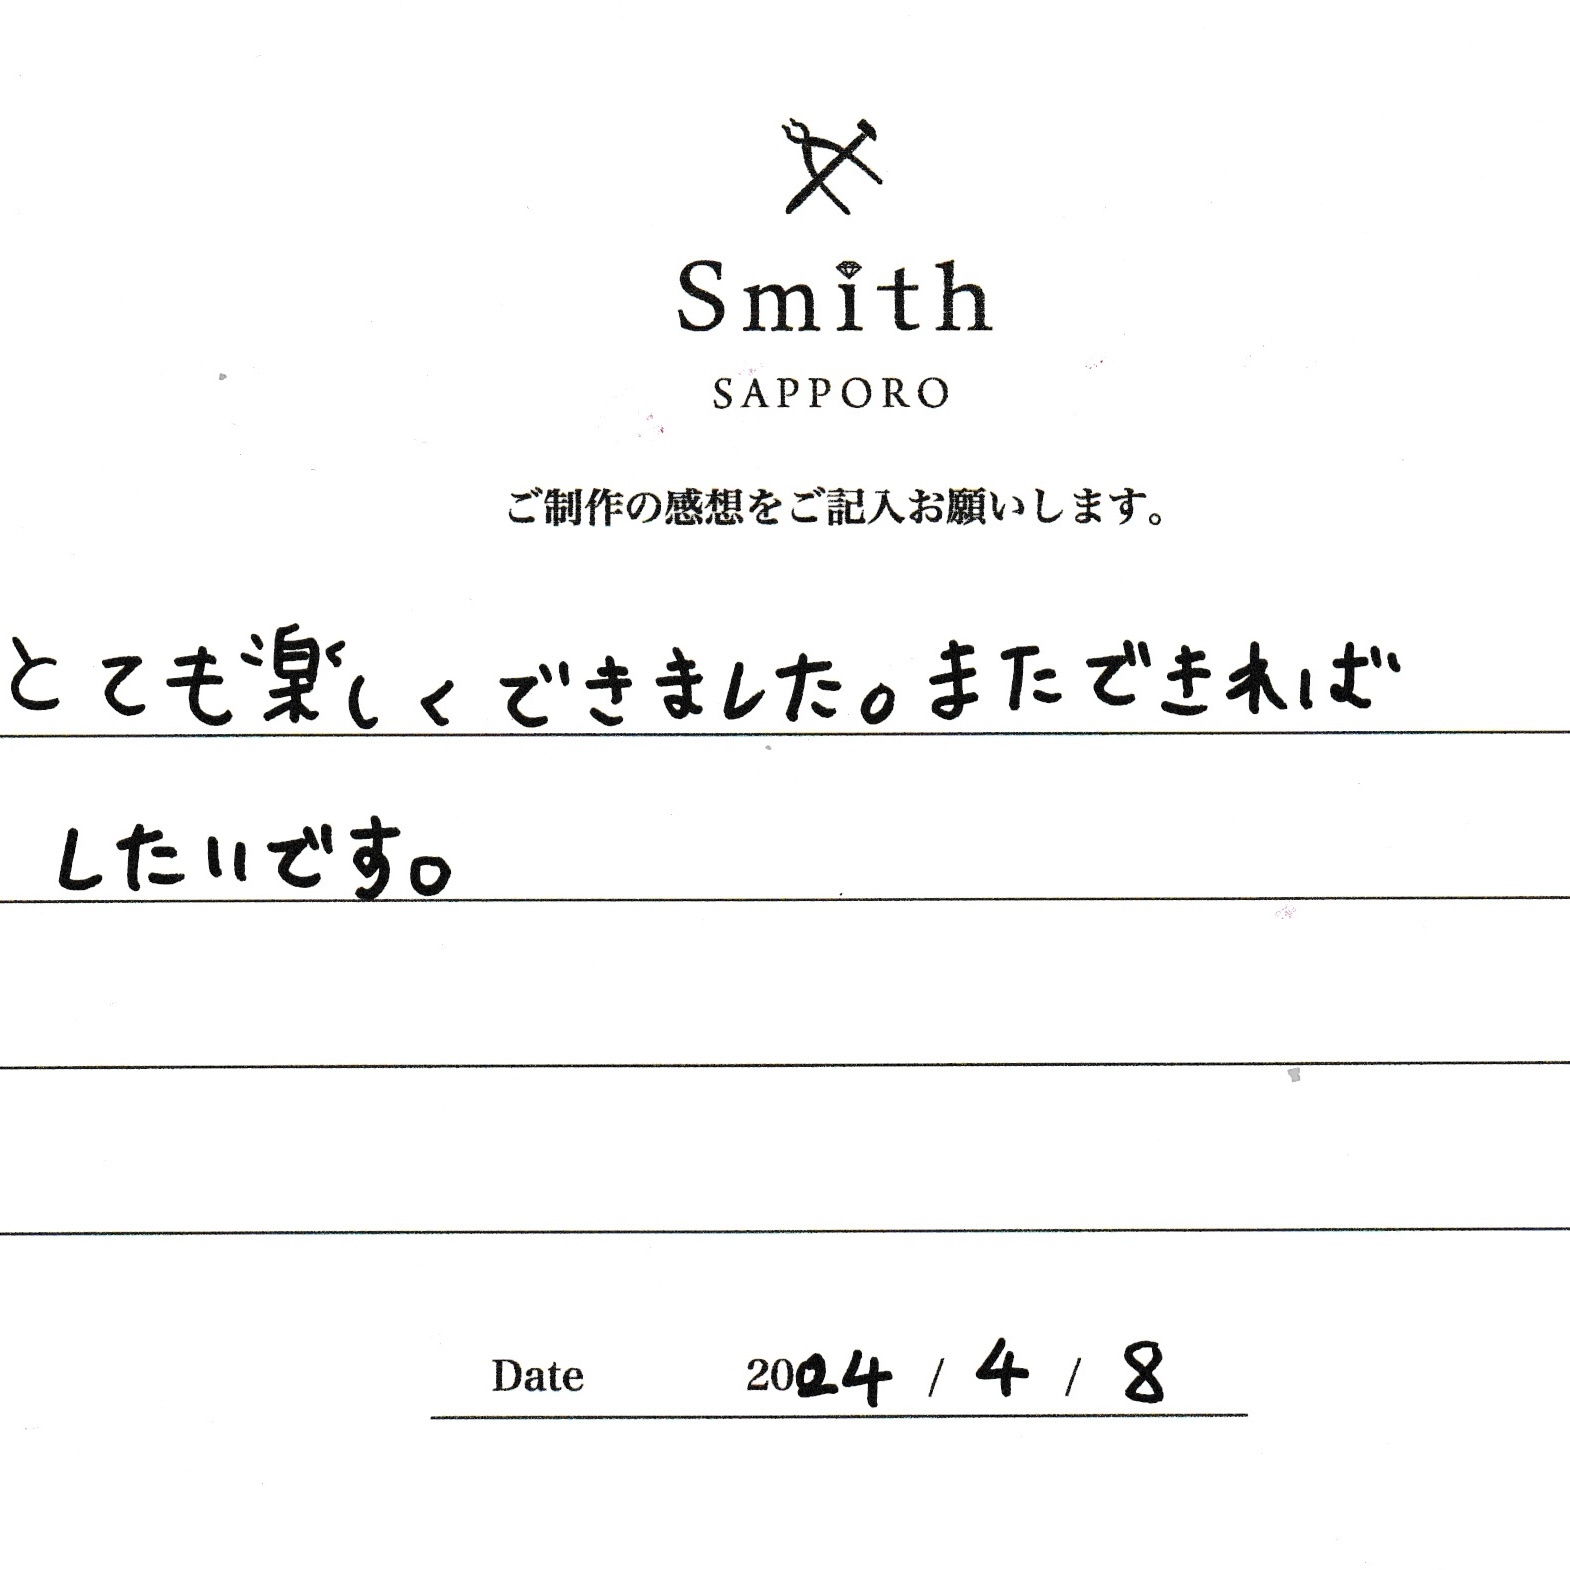 Smith
SAPPORO
ご制作の感想をご記入お願いします。
とても楽しくできました。またできれば
したいです。
Date 2024 / 4 / 8